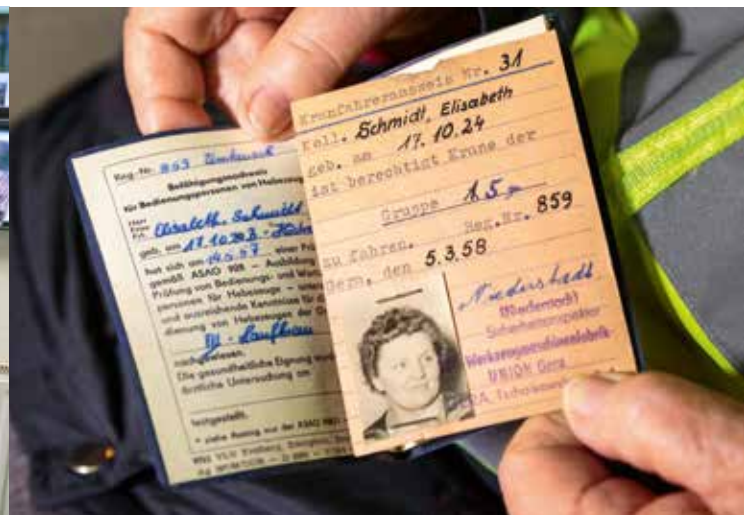 Reg.-Nr. 859
Befähigungsnachweis
für Bedienungspersonen von Hebezeug
Herr
Frau
Frl. Elisabeth Schmidt
geb. am 17.10.
hat sich am 14.5.57 einer Prü
gemäß ASAO 908 – Ausbildung
Prüfung von Bedienungs- und War
personen für Hebezeuge – unter
und ausreichende Kenntnisse für di
dienung von Hebezeugen der Gr
nachgewiesen.
Die gesundheitliche Eignung wurd
ärztliche Untersuchung am
festgestellt.
* siehe Auszug aus der ASAO 908
Kranfahrerausweis Nr. 31
Koll. Schmidt, Elisabeth
geb. am 17.10.24
ist berechtigt Krane der
Gruppe 1.5
zu fahren. Reg.Nr. 859
Gera, den 5.3.58
Niederstadt
Sicherheitsinspektor
Werkzeugmaschinenfabrik
UNION Gera